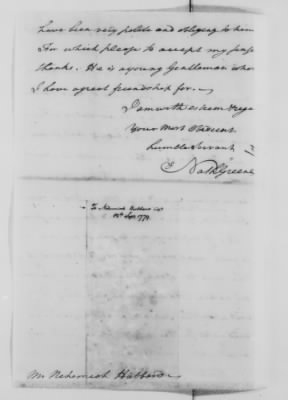 have been very polite and obliging to him
For which please to accept my
thanks. He is a young Gentleman whom
I have a great friendship for.
I am with esteem & rega
Your Most Obedient
humble Servant
Nath Greene
To Nehemiah Hubbard
Sept 1779
Mr Nehemiah Hubbard